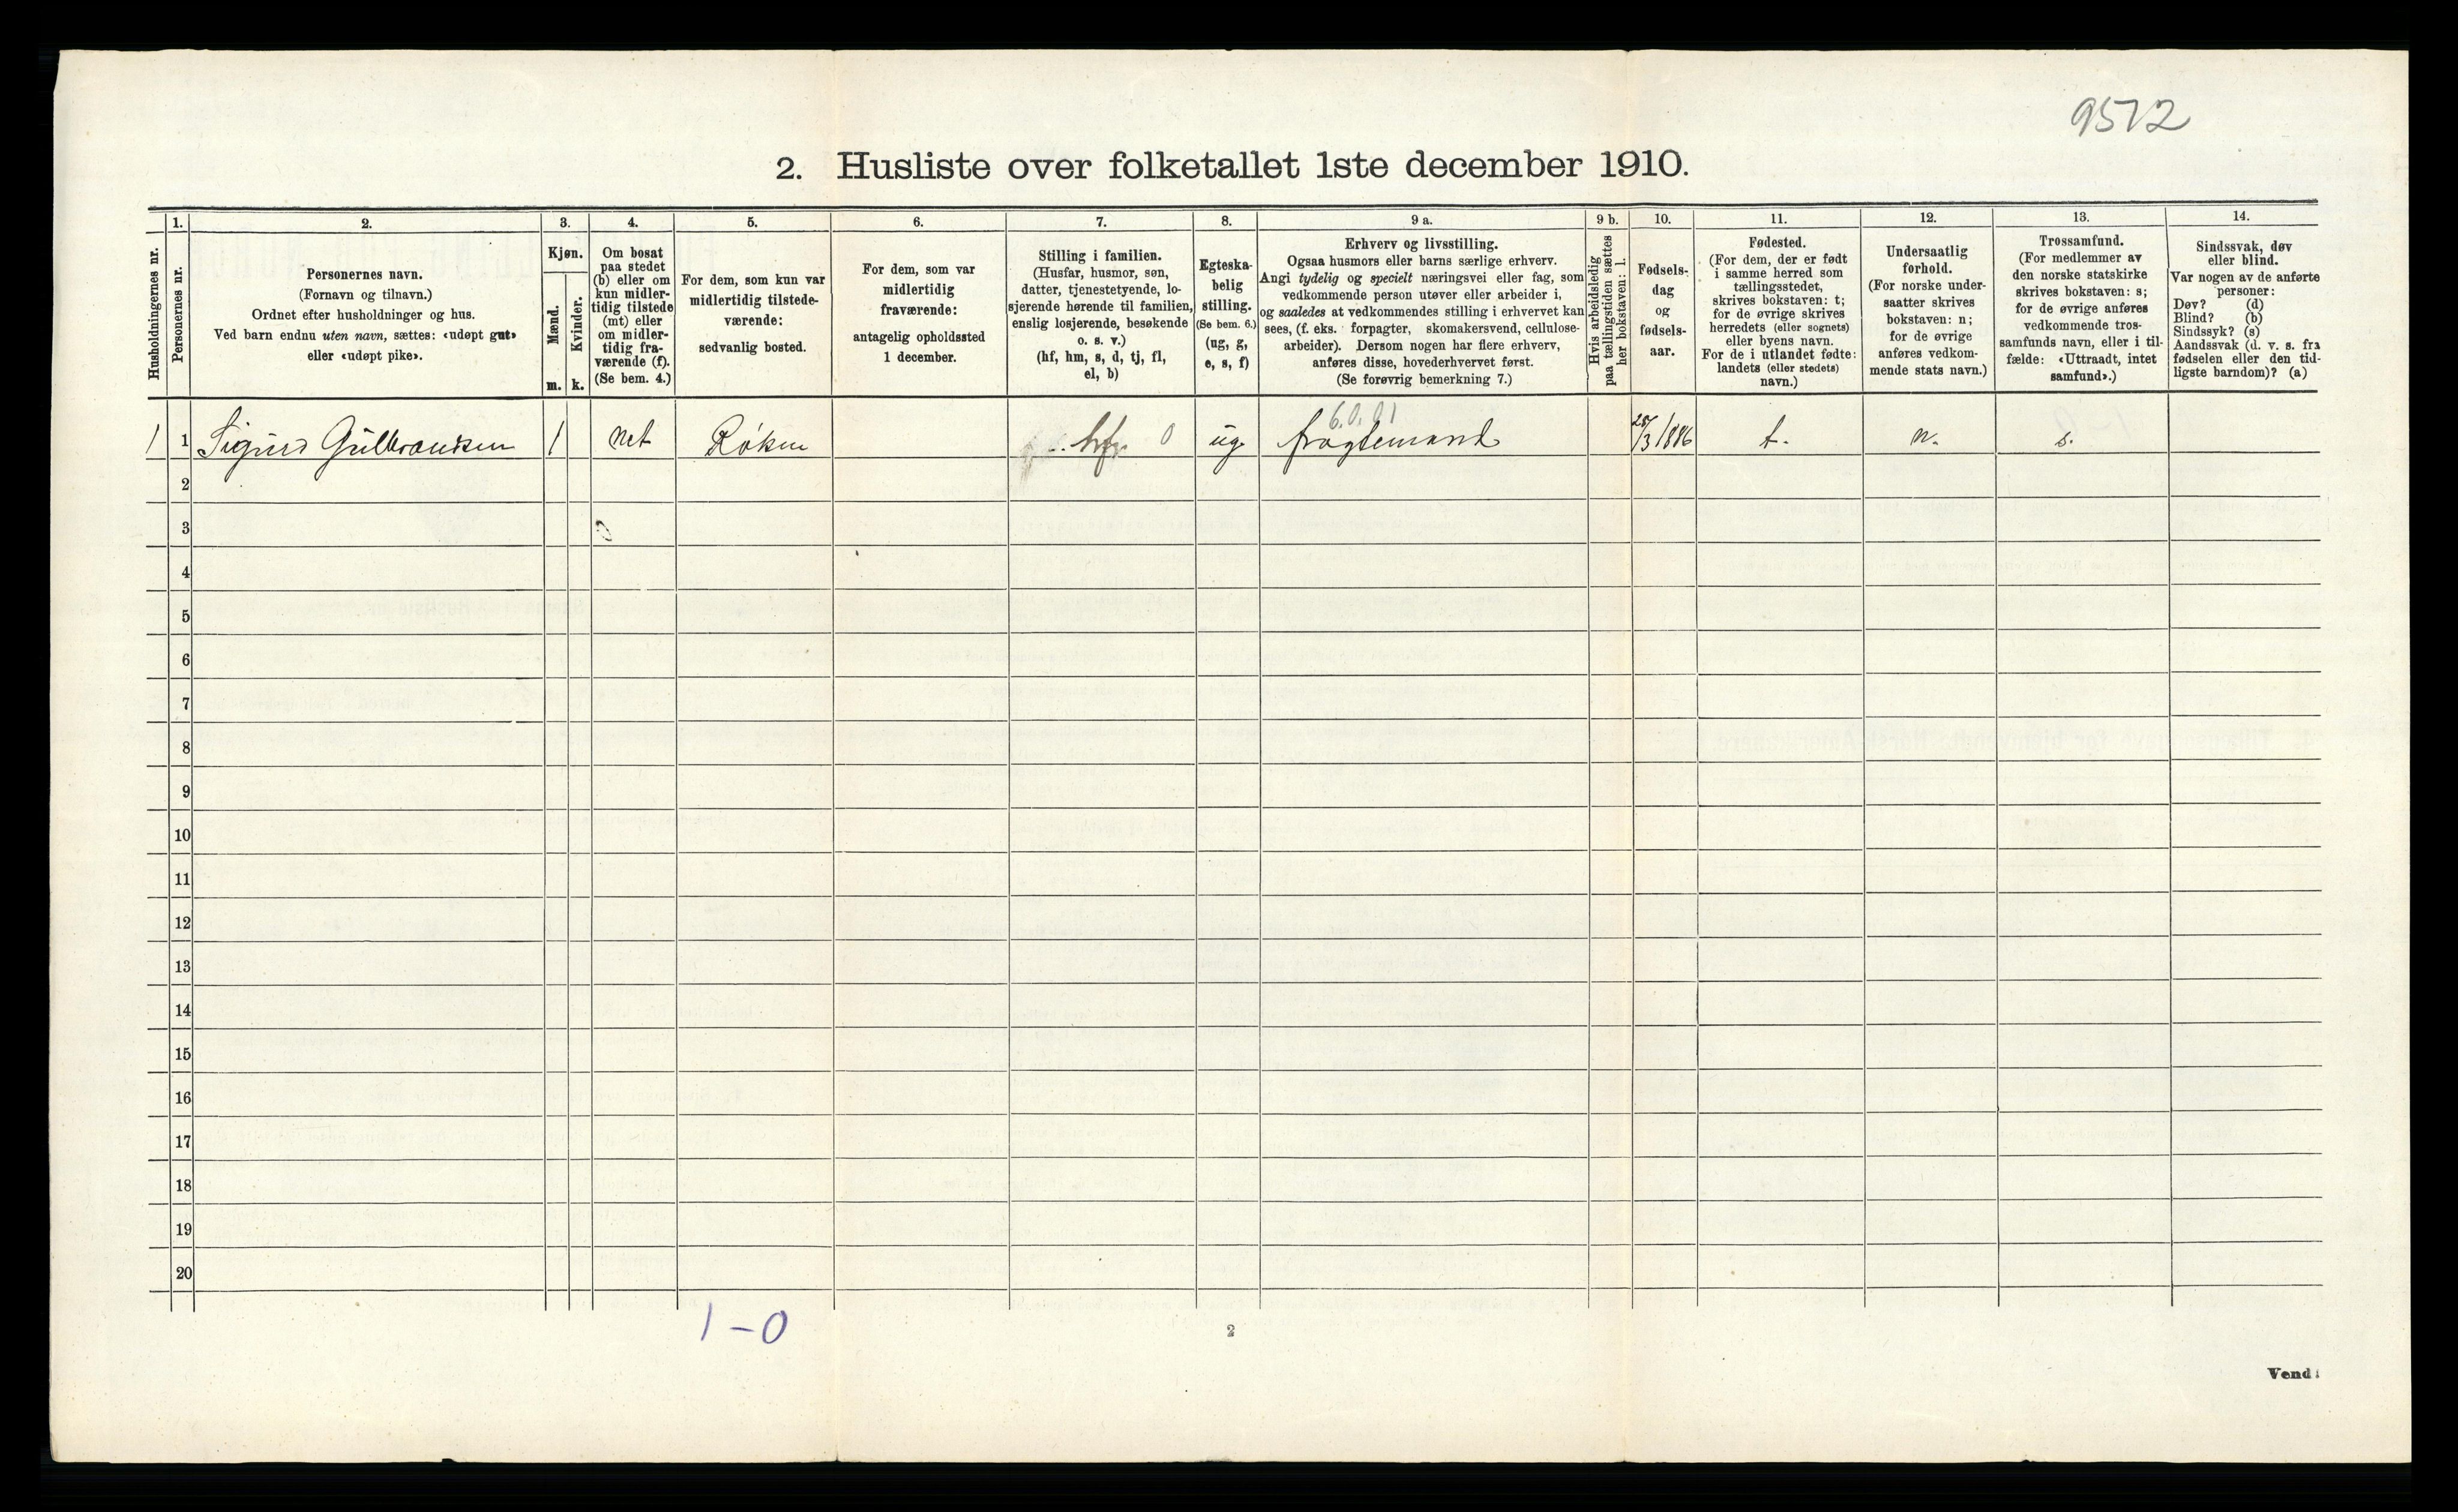 9572
2. Husliste over folketallet 1ste december 1910.
Husholdningernes nr.
1.
Personernes nr.
2.
Personernes navn.
(Fornavn og tilnavn.)
Ordnet efter husholdninger og hus.
Ved barn endnu uten navn, sættes: «udøpt gut»
eller «udøpt pike».
3.
Kjøn.
Mænd.
m.
Kvinder.
k.
4.
Om bosat
paa stedet
(b) eller om
kun midler-
tidig tilstede
(mt) eller
om midler-
tidig fra-
værende (f).
(Se bem. 4.)
5.
For dem, som kun var
midlertidig tilstede-
værende:
sedvanlig bosted.
6.
For dem, som var
midlertidig
fraværende:
antagelig opholdssted
1 december.
7.
Stilling i familien.
(Husfar, husmor, søn,
datter, tjenestetyende, lo-
sjerende hørende til familien,
enslig losjerende, besøkende
o. s. v.)
(hf, hm, s, d, tj, fl,
el, b)
8.
Egteska-
belig
stilling.
(Se bem. 6.)
(ug, g,
e, s, f)
9 a.
Erhverv og livsstilling.
Ogsaa husmors eller barns særlige erhverv.
Angi tydelig og specielt næringsvei eller fag, som
vedkommende person utøver eller arbeider i,
og saaledes at vedkommendes stilling i erhvervet kan
sees, (f. eks. forpagter, skomakersvend, cellulose-
arbeider). Dersom nogen har flere erhverv,
anføres disse, hovederhvervet først.
(Se forøvrig bemerkning 7.)
9 b.
Hvis arbeidsledig
paa tællingstiden sættes
her bokstaven: l.
10.
Fødsels-
dag
og
fødsels-
aar.
11.
Fødested.
(For dem, der er født
i samme herred som
tællingsstedet,
skrives bokstaven: t;
for de øvrige skrives
herredets (eller sognets)
eller byens navn.
For de i utlandet fødte:
landets (eller stedets)
navn.)
12.
Undersaatlig
forhold.
(For norske under-
saatter skrives
bokstaven: n;
for de øvrige
anføres vedkom-
mende stats navn.)
13.
Trossamfund.
(For medlemmer av
den norske statskirke
skrives bokstaven: s;
for de øvrige anføres
vedkommende tros-
samfunds navn, eller i til-
fælde: «Uttraadt, intet
samfund».)
14.
Sindssvak, døv
eller blind.
Var nogen av de anførte
personer:
Døv? (d)
Blind? (b)
Sindssyk? (s)
Aandssvak (d. v. s. fra
fødselen eller den tid-
ligste barndom)? (a)
1 1 Sigurd Gulbrandsen 1 mt Røken 0 ug fragtemand /3 1886 t. n. s.
2
3
4
5
6
7
8
9
10
11
12
13
14
15
16
17
18
19
20
1 - 0
2
Vend!